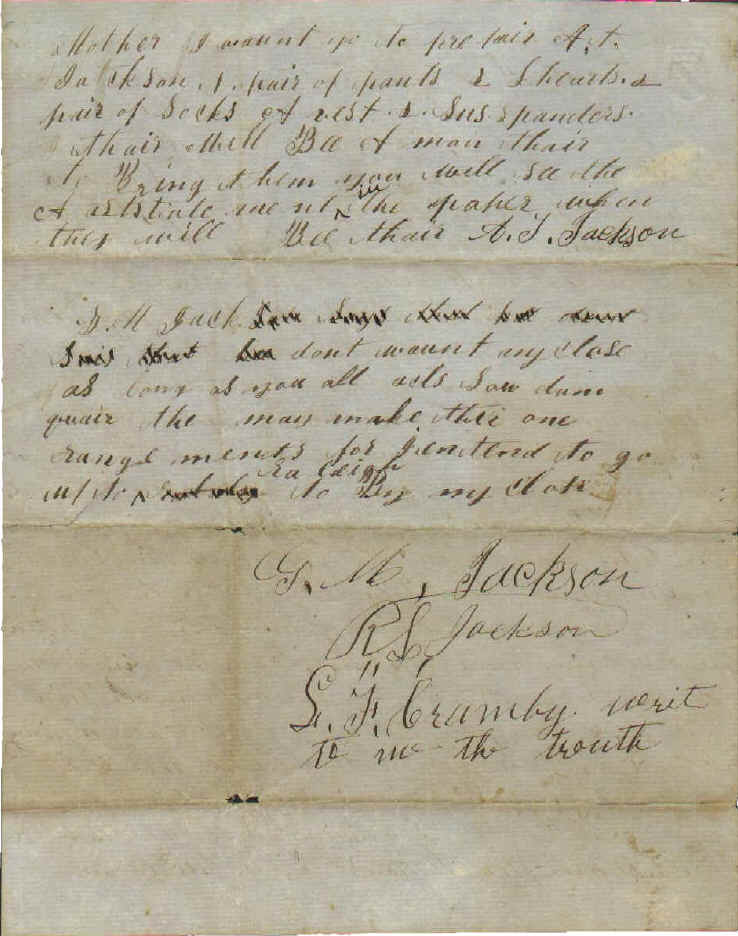 Mother I waunt yo to prepair A. J.
Jackson 1 pair of pants 2 Shearts 2
pair of Socks A vest & Suspanders.
thair Will Bee A man thair
to Bring them you will see the
Advirtstatement in the paper when
they will Bee thair A. J. Jackson
G. M Jack
dont waunt my close
as long as you all acts Sow dam
quair the may make thie one
rangements for I entend to go
up to Raleigh to By my close
G. M. Jackson
R S Jackson
L. F. Cramby writ
to me the trouth